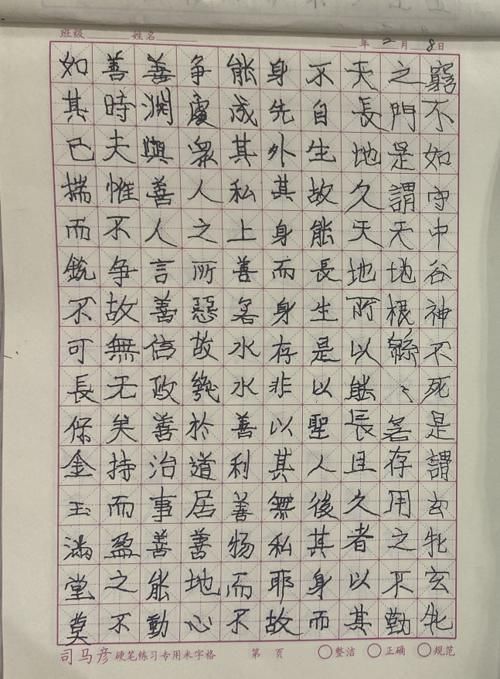 班级 姓名 年 2 月 8 日
窮不如守中谷神不死是謂玄牝玄牝
之門是謂天地根緜〻若存用之不勤
天長地久天地所以能長且久者以其
不自生故能長生是以聖人後其身而
身先外其身而身存非以其無私耶故
能成其私上善若水水善利善物而不
争處衆人之所惡故幾於道居善地心
善渊與善人言善信政善治事善能動
善時夫惟不争故無无矣持而盈之不
如其已揣而銳不可長保金玉滿堂莫
司马彦硬笔练习专用米字格 第 页 整洁 正确 规范